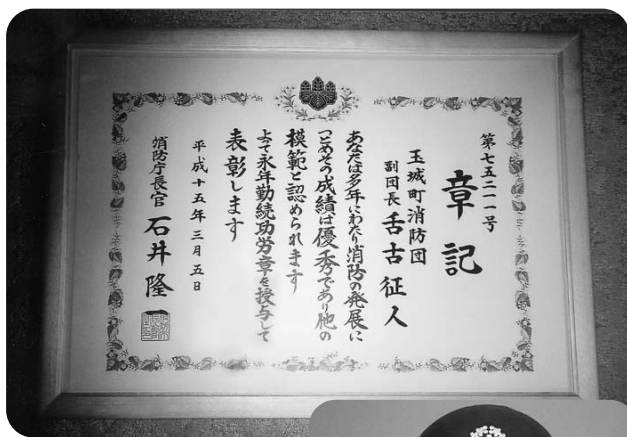 第七五二一一号
章記
玉城町消防団
副団長 舌古征人
あなたは多年にわたり消防の発展に
つとめその成績は優秀であり他の
模範と認められます
よって永年勤続功労章を授与して
表彰します
平成十五年三月五日
消防庁長官 石井隆